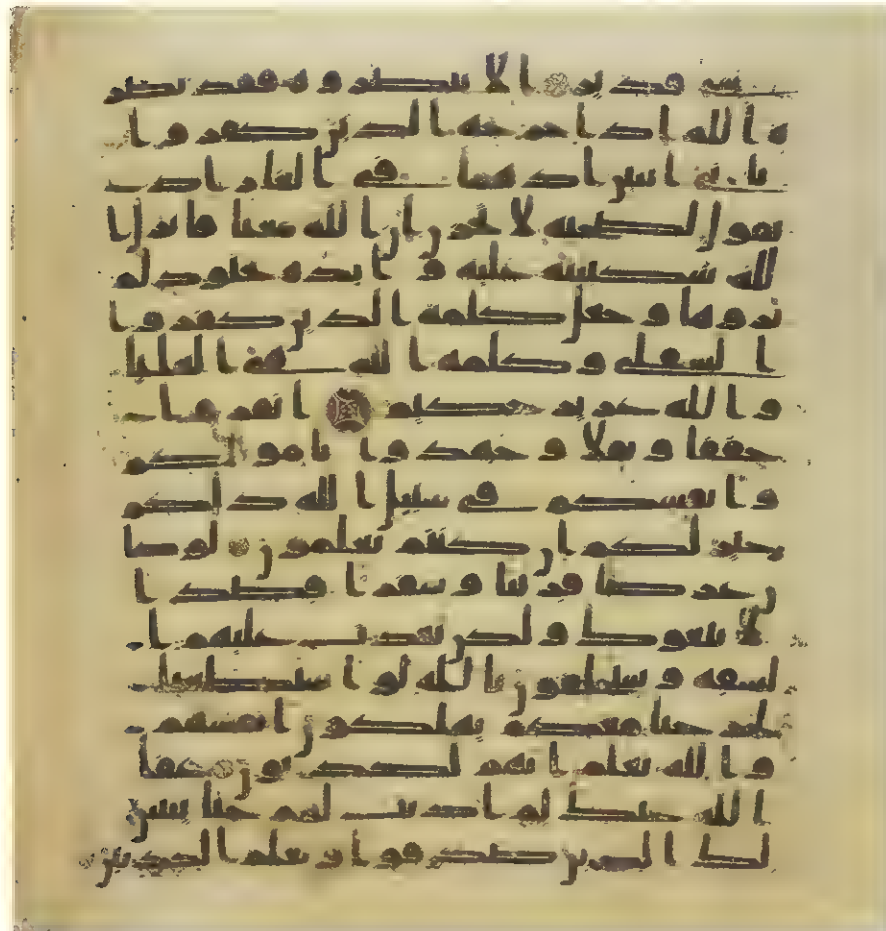 شى قدير الا تنصروه فقد نصر
ه الله اذ اخرجه الذين كفروا
ثانى اثنين اذ هما فى الغار اذ
يقول لصحبه لا تحزن ان الله معنا فانزل ا
لله سكينته عليه وايده بجنود لم
تروها وجعل كلمة الذين كفروا
السفلى وكلمة الله هى العليا
والله عزيز حكيم انفروا
خفافا وثقلا وجهدوا باموالكم
وانفسكم فى سبيل الله ذلكم
خير لكم ان كنتم تعلمون لو كا
ن عرضا قريبا وسفرا قصدا
لاتبعوك ولكن بعدت عليهم ا
لشقة وسيحلفون بالله لو استطعنا
لخرجنا معكم يهلكون انفسهم
والله يعلم انهم لكذبون عفا
الله عنك لم اذنت لهم حتى يتبين
لك الذين صدقوا وتعلم الكذبين